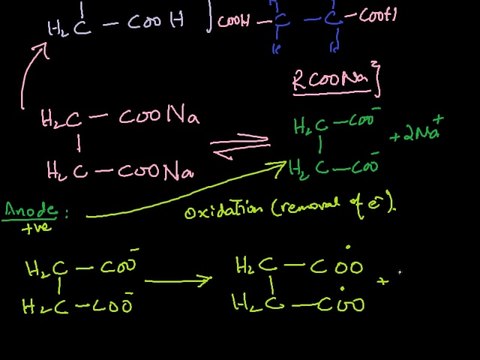 H₂C — COOH ] COOH — C — C — COOH
RCOONa]
H₂C — COONa
H₂C — COONa
H₂C — COO⁻
H₂C — COO⁻
+ 2Na⁺
Anode :
+ve
Oxidation (removal of e⁻).
H₂C — COO⁻
H₂C — COO⁻
H₂C — COO•
H₂C — COO•
+